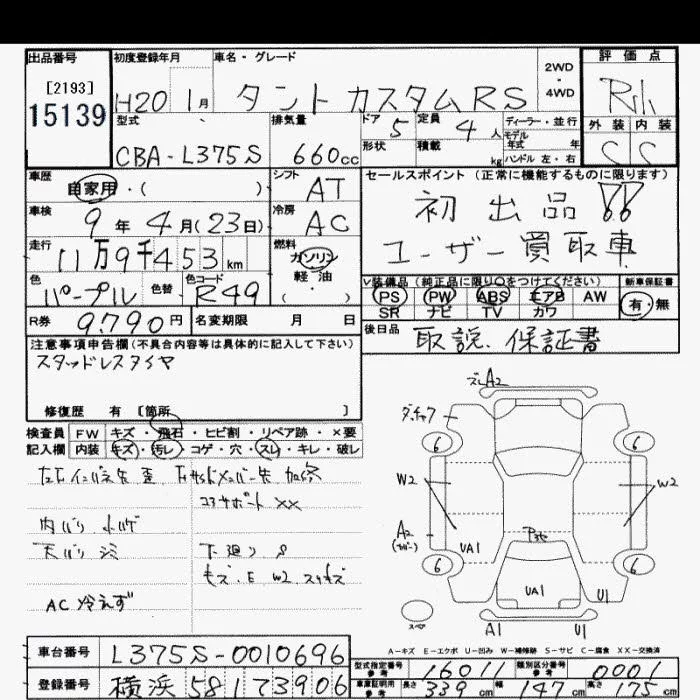 出品番号 初度登録年月 車名・グレード 2WD・4WD 評価点
[2193]
15139
H20 1月 タント カスタム RS
型式 排気量 ドア 5 定員 4人 ディーラー・並行
モデル年式 年
外装 内装
CBA-L375S 660cc 形状 積載 kg ハンドル 左・右
車歴 自家用・( ) シフト AT セールスポイント (正常に機能するものに限ります)
車検 9年 4月(23日) 冷房 AC 初出品!!
走行 11万9千453km 燃料 ガソリン 軽・油 ( ) ユーザー買取車
色 パープル 色替 色コード R49
V装備品 (純正品に限り○をつけてください) 新車保証書
PS PW ABS エアB AW 有・無
SR ナビ TV カワ
R券 9,790円 名変期限 月 日 後日品 取説、保証書
注意事項申告欄(不具合内容等は具体的に記入して下さい)
スタッドレスタイヤ
修復歴 有 [箇所 ]
検査員 FW キズ・飛石・ヒビ割・リペア跡・×要
記入欄 内装 キズ・汚レ・コゲ・穴・スレ・キレ・破レ
コアサポート XX
AC 冷えず
下廻り S
A2
W2
W2
A2
6
6
6
6
UA1
UA1
U1
スペア
A1
U1
A-キズ E-エクボ U-凹み W-補修跡 S-サビ C-腐食 XX-交換済
車台番号 L375S-0010696
登録番号 横浜 581 73906
型式指定番号 参考 16011 類別区分番号 参考 0001
車庫証明用 参考 長さ 339cm 幅 147cm 高さ 175cm